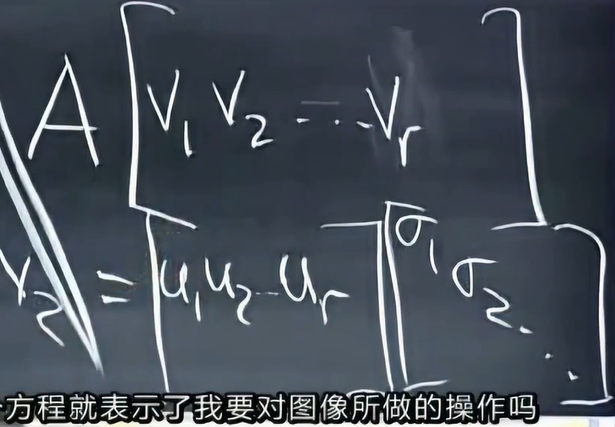 A [ v₁ v₂ ... vᵣ ]
v₂ = [ u₁ u₂ ... uᵣ ] [ σ₁ σ₂ ... ]
方程就表示了我要对图像所做的操作吗